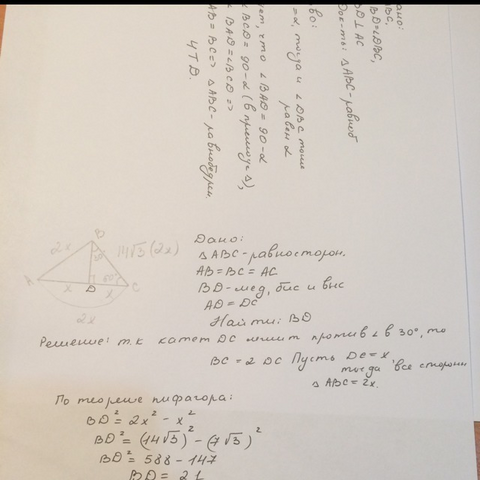 Дано:
ВС,
ВD=∠DBC,
BD⊥AC
Док-ть: △ABC-равноб
во:
=α, тогда и ∠DBC тоже
равен α
ет, что ∠BAD=90-α
∠BCD=90-α (в прямоуг △),
∠BAD=∠BCD =>
AB=BC=> △ABC-равнобедрен.
ЧТД.
B
2x
30°
14√3 (2x)
60°
A
x
D
x
C
2x
Дано:
△ABC-равносторон.
AB=BC=AC
BD-мед, бис и выс
AD=DC
Найти: BD
Решение: т.к катет DC лежит против ∠ в 30°, то
BC=2DC Пусть DC=x,
тогда все стороны
△ABC=2x.
По теореме пифагора:
BD²=2x²-x²
BD²=(14√3)²-(7√3)²
BD²=588-147
BD=21